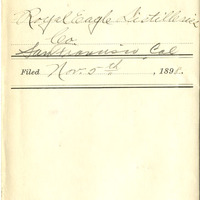 Royal Eagle Distilleries
Co.
San Francisco, Cal
Filed Nov. 5th, 1898.